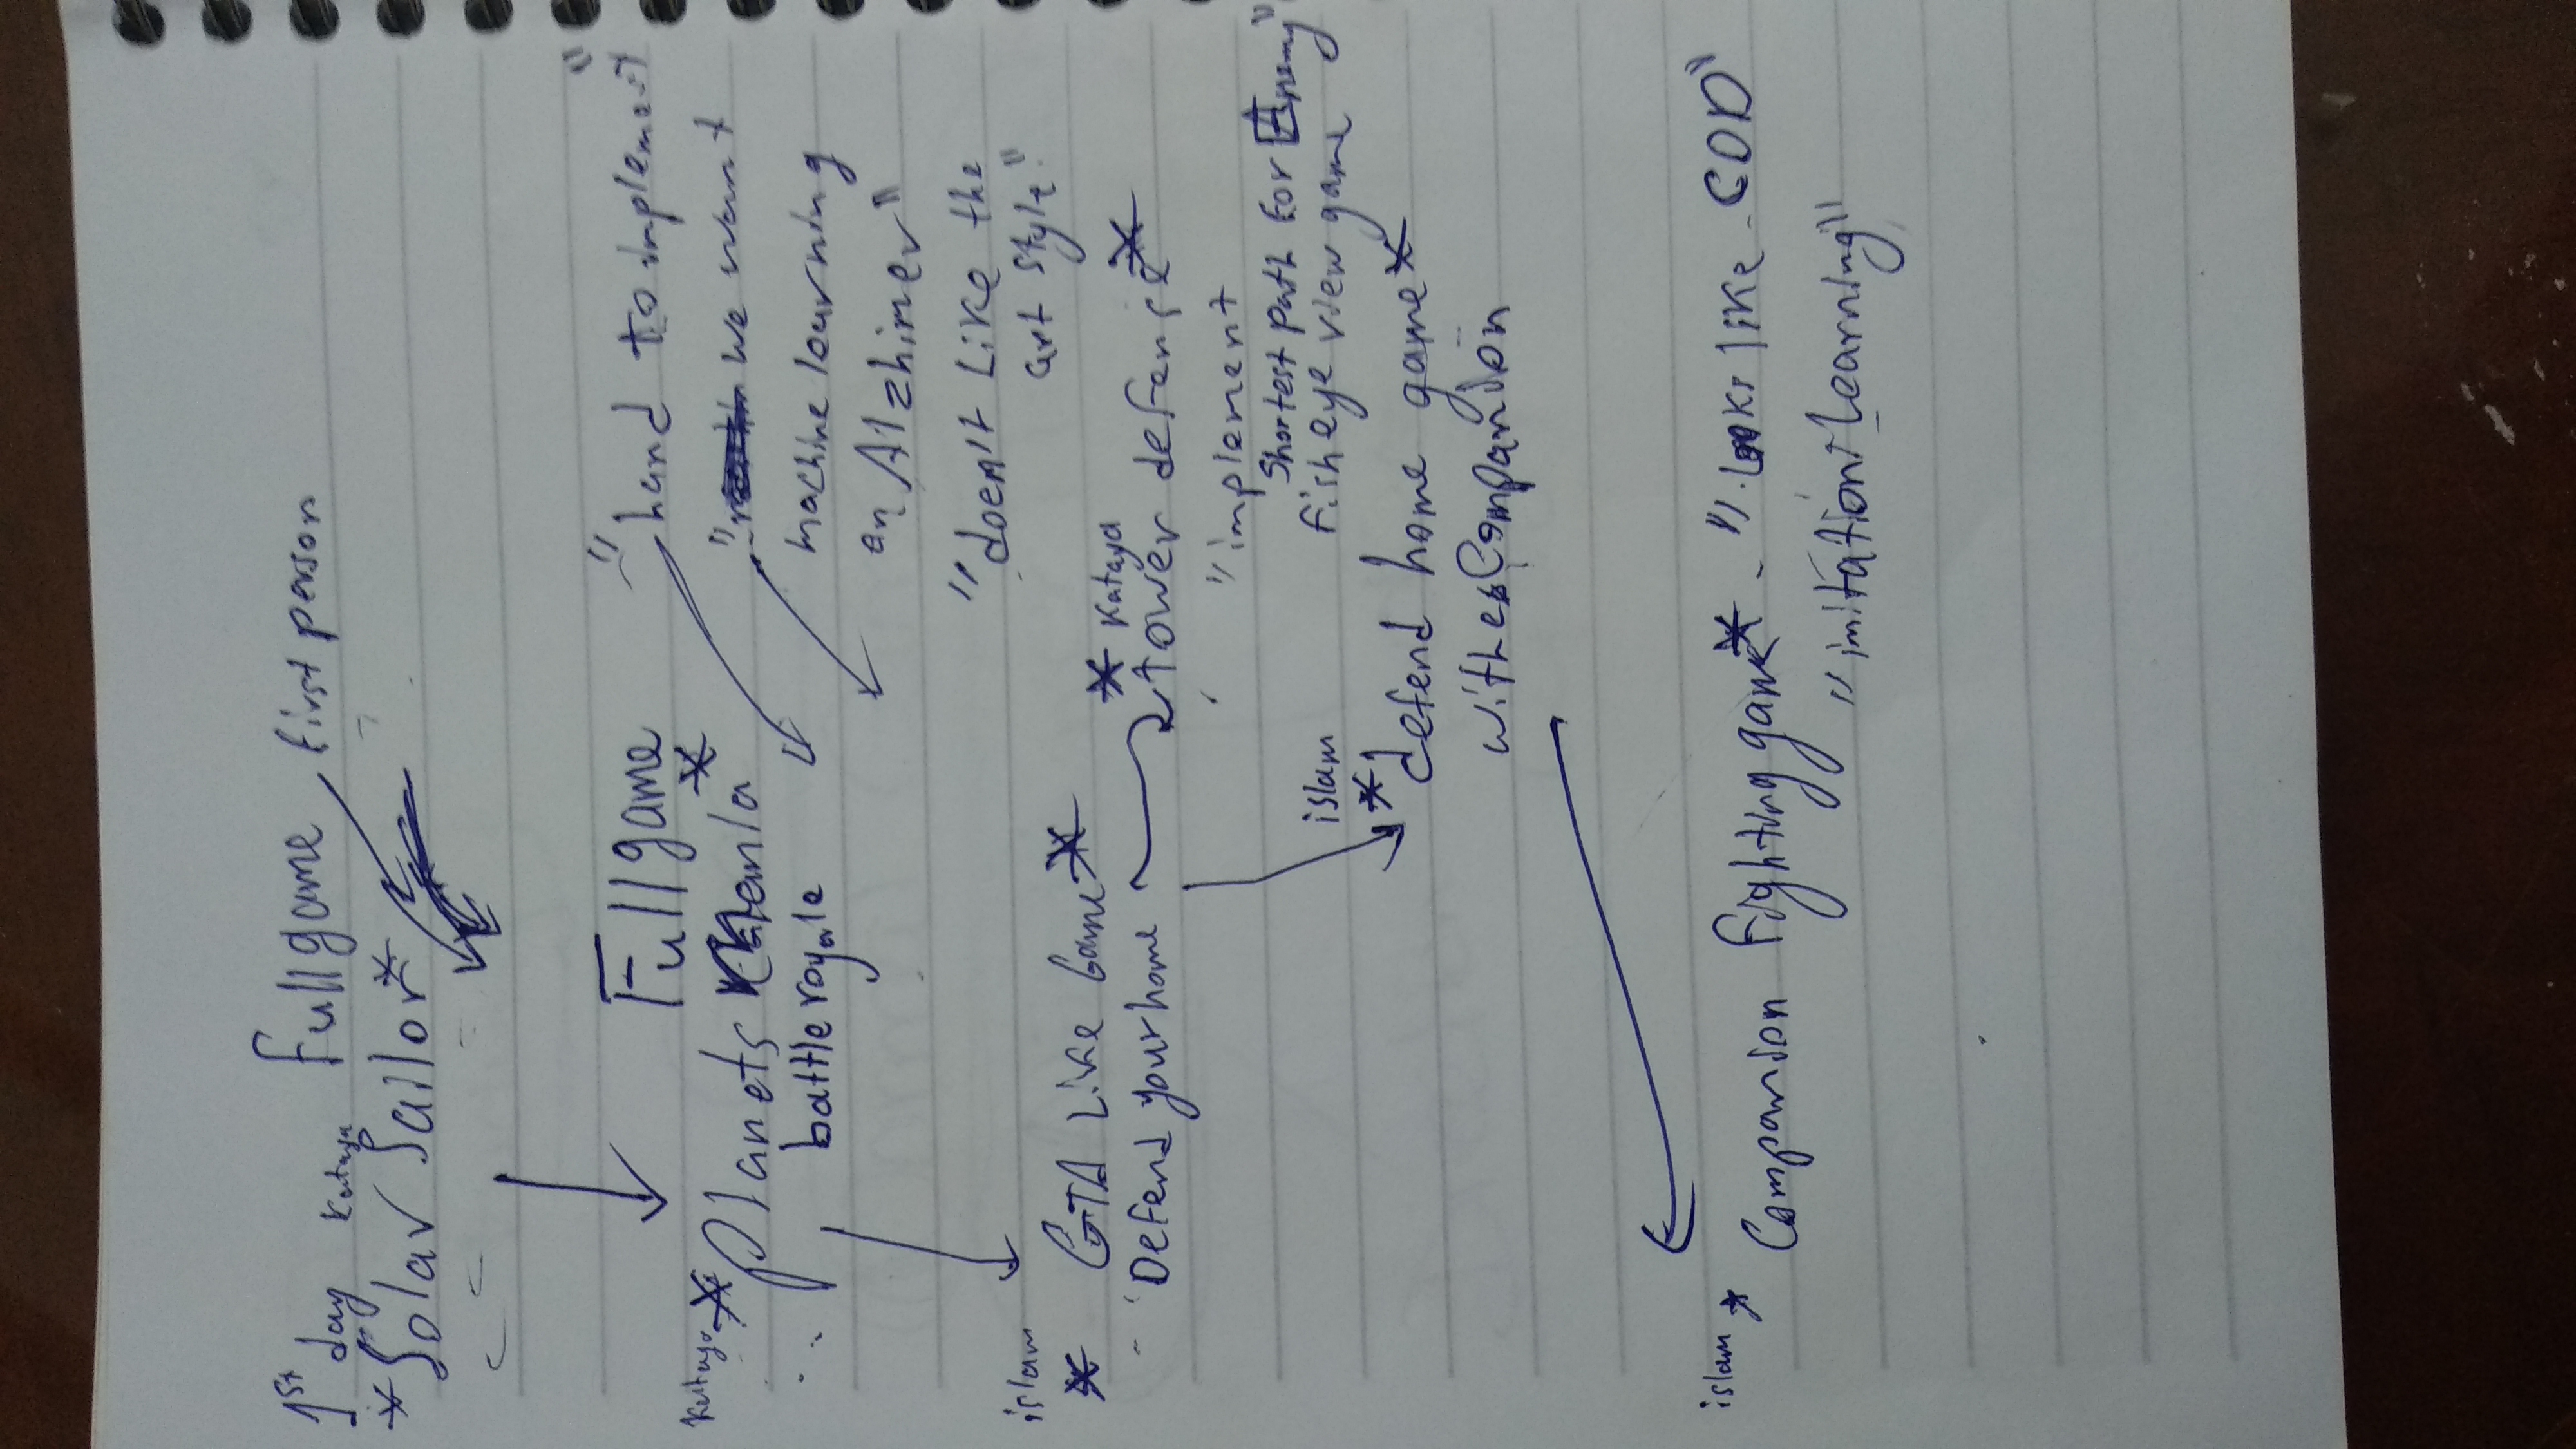 1st day Kataya Full game first person
*Solar Sailor*
Full game "hand to implement"
Kataya *Planets mania*
"we want
battle royale machine learning
an Alzhimer"
"doen't Like the
art style"
islam
* GTA Like Game*
* Kataya
Defend your home tower defense*
"implement
Shortest path for Enemy"
fisheye view game
islam
*defend home game*
with Companion
islam * Companion fighting game* - "Looks like COD"
"imitation learning"